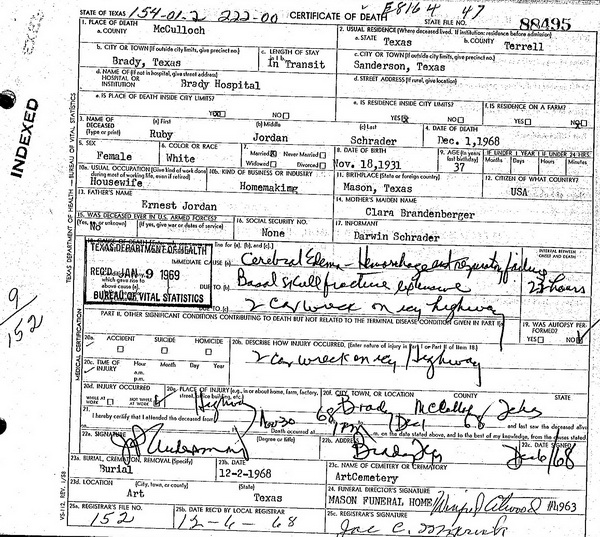 STATE OF TEXAS 154-01-2 222-00 CERTIFICATE OF DEATH E8164 47
STATE FILE NO. 88495
1. PLACE OF DEATH
a. COUNTY McCulloch
2. USUAL RESIDENCE (Where deceased lived. If institution: residence before admission)
a. STATE Texas b. COUNTY Terrell
b. CITY OR TOWN (If outside city limits, give precinct no.) Brady, Texas
c. LENGTH OF STAY in 1b In Transit
c. CITY OR TOWN (If outside city limits, give precinct no.) Sanderson, Texas
d. NAME OF (If not in hospital, give street address) HOSPITAL OR INSTITUTION Brady Hospital
d. STREET ADDRESS (If rural, give location)
e. IS PLACE OF DEATH INSIDE CITY LIMITS? YES NO
e. IS RESIDENCE INSIDE CITY LIMITS? YES NO
f. IS RESIDENCE ON A FARM? YES NO
3. NAME OF DECEASED (Type or print) (a) First Ruby (b) Middle Jordan (c) Last Schrader
4. DATE OF DEATH Dec. 1,1968
5. SEX Female
6. COLOR OR RACE White
7. Married Never Married Widowed Divorced
8. DATE OF BIRTH Nov. 18,1931
9. AGE (In years last birthday) 37
IF UNDER 1 YEAR Months Days
IF UNDER 24 HRS. Hours Minutes
10a. USUAL OCCUPATION (Give kind of work done during most of working life, even if retired) Housewife
10b. KIND OF BUSINESS OR INDUSTRY Homemaking
11. BIRTHPLACE (State or foreign country) Mason, Texas
12. CITIZEN OF WHAT COUNTRY? USA
13. FATHER'S NAME Ernest Jordan
14. MOTHER'S MAIDEN NAME Clara Brandenberger
15. WAS DECEASED EVER IN U.S. ARMED FORCES? (Yes, no or unknown) (If yes, give war or dates of service) No
16. SOCIAL SECURITY NO. None
17. INFORMANT Darwin Schrader
line for (a), (b), and (c).
INTERVAL BETWEEN ONSET AND DEATH
TEXAS DEPARTMENT OF HEALTH
REC'D JAN 9 1969
BUREAU OF VITAL STATISTICS
IMMEDIATE CAUSE (a) Cerebral Edema - Hemorrhage and respiratory failure
Basal skull fracture extensive 23 hours
2 car wreck on icy highway
PART II. OTHER SIGNIFICANT CONDITIONS CONTRIBUTING TO DEATH BUT NOT RELATED TO THE TERMINAL DISEASE CONDITION GIVEN IN PART I
19. WAS AUTOPSY PERFORMED? YES NO
20a. ACCIDENT SUICIDE HOMICIDE
20b. DESCRIBE HOW INJURY OCCURRED. (Enter nature of injury in Part I or Part II of Item 18)
2 car wreck on icy Highway
20c. TIME OF INJURY Hour a.m. p.m. Month Day Year
20d. INJURY OCCURRED WHILE AT WORK NOT WHILE AT WORK
20e. PLACE OF INJURY (e.g., in or about home, farm, factory, street, office building, etc.) Highway
20f. CITY, TOWN, OR LOCATION COUNTY STATE
Brady
21. I hereby certify that I attended the deceased from Nov 30 68 Dec 1 68 and last saw the deceased alive
Death occurred at m. on the date stated above, and to the best of my knowledge, from the causes stated.
22a. SIGNATURE (Degree or title)
22b. ADDRESS Brady
22c. DATE SIGNED Dec 6/68
23a. BURIAL, CREMATION, REMOVAL (Specify) Burial
23b. DATE 12-2-1968
23c. NAME OF CEMETERY OR CREMATORY ArtCemetery
23d. LOCATION (City, town, or county) (State) Art Texas
24. FUNERAL DIRECTOR'S SIGNATURE MASON FUNERAL HOME
25a. REGISTRAR'S FILE NO. 152
25b. DATE REC'D BY LOCAL REGISTRAR 12-6-68
25c. REGISTRAR'S SIGNATURE
INDEXED
9/152
TEXAS DEPARTMENT OF HEALTH - BUREAU OF VITAL STATISTICS
MEDICAL CERTIFICATION
VS-112, REV. 1/58